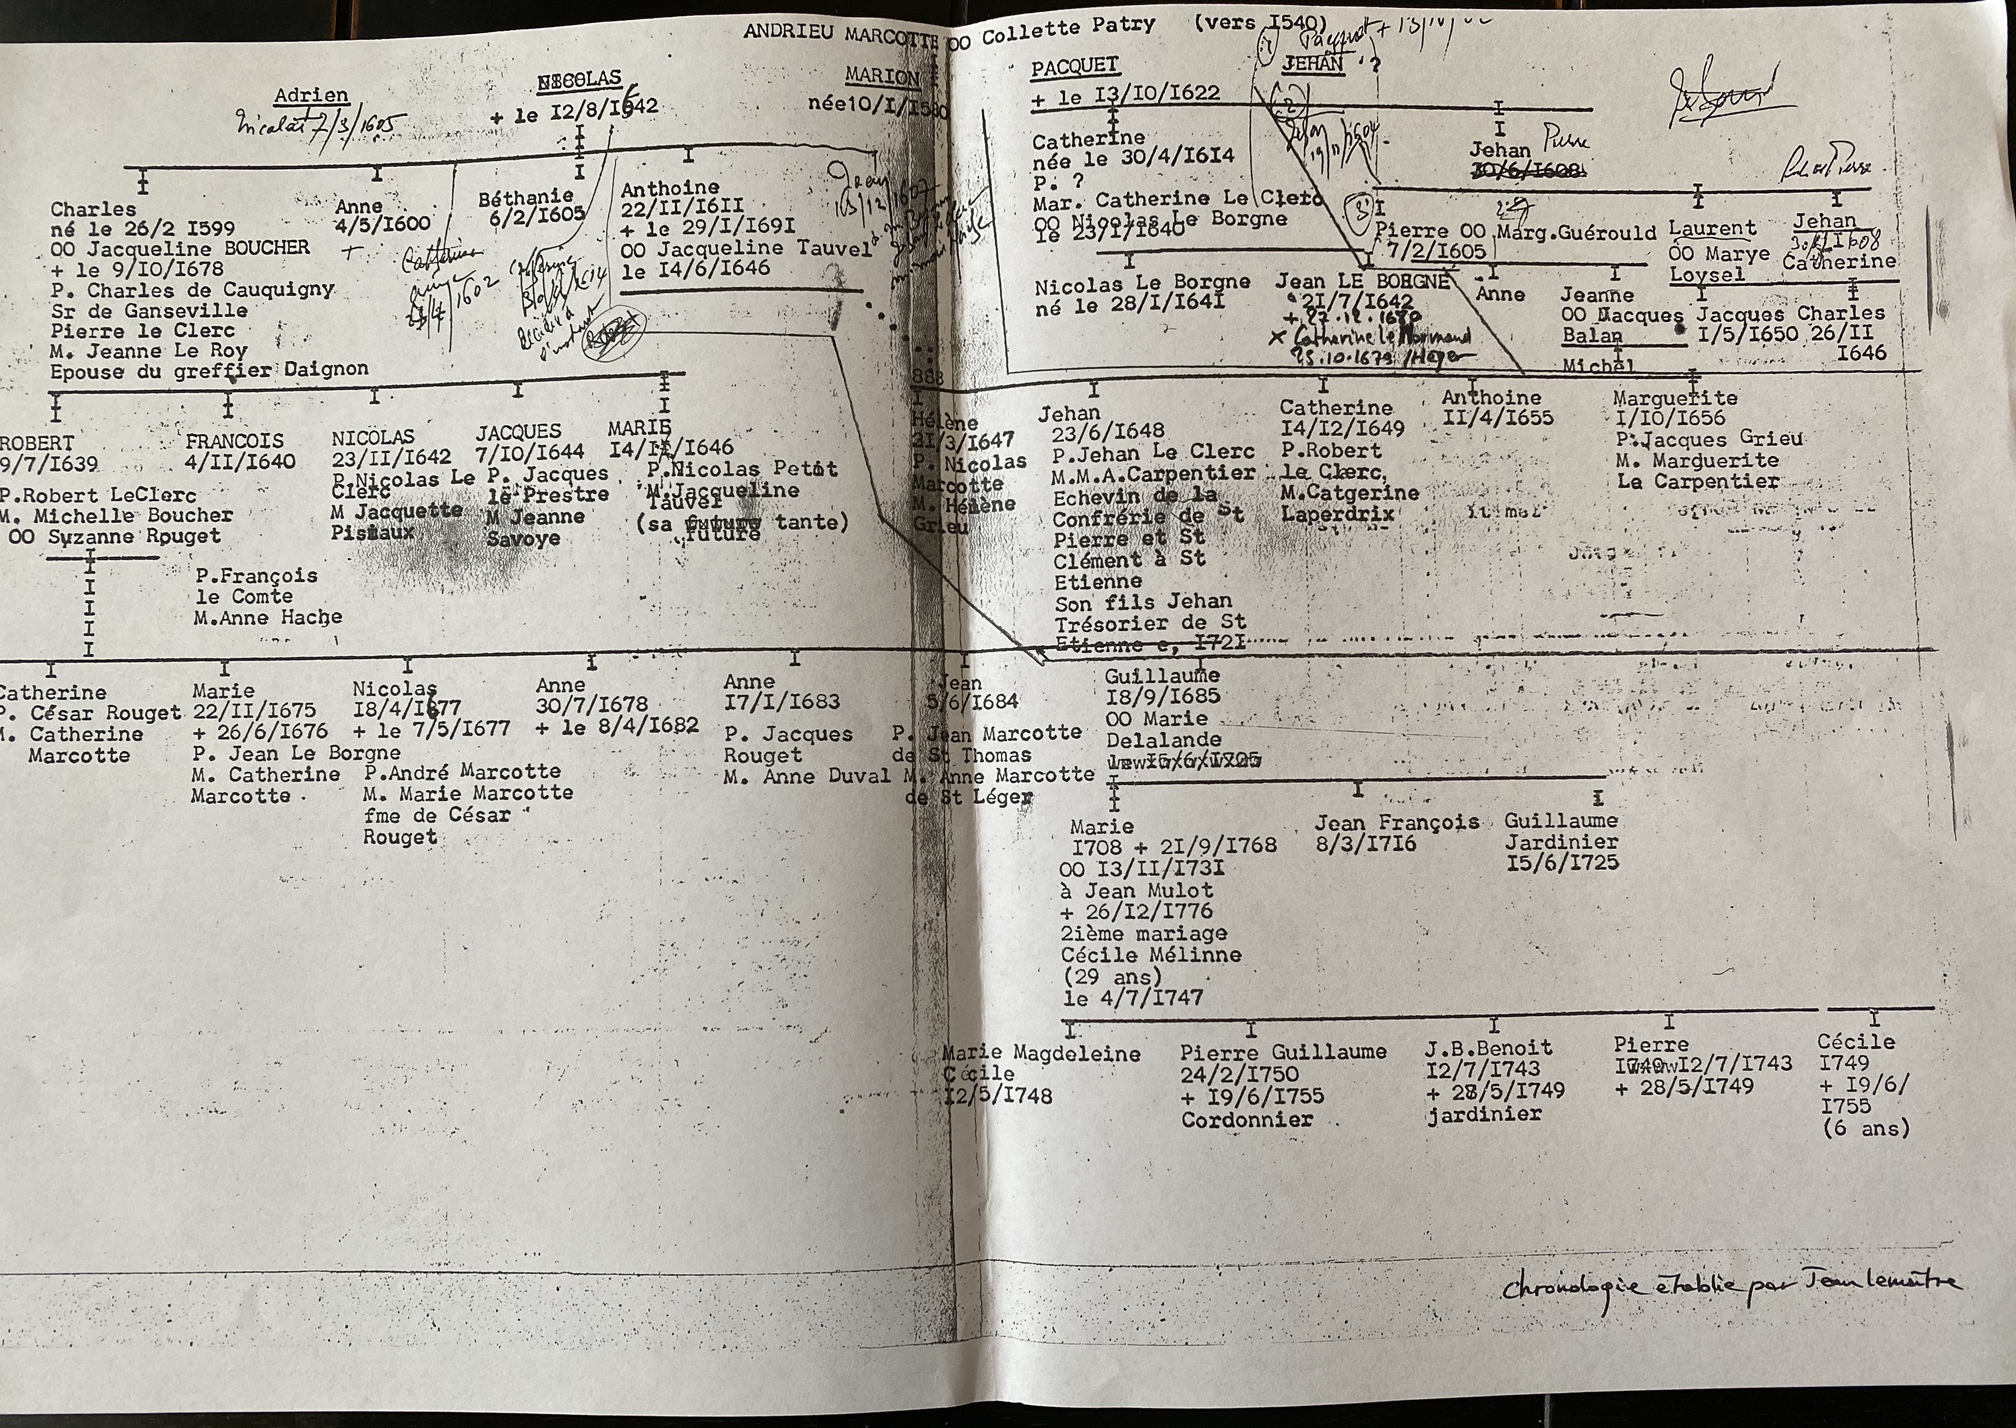 ANDRIEU MARCOTTE OO Collette Patry (vers I540)
Pacquet + 13/10/
Adrien
Nicolas 7/3/1605
NICOLAS
+ le I2/8/I642
MARION
née10/I/I580
PACQUET
+ le I3/IO/I622
JEHAN ?
Charles
né le 26/2 I599
OO Jacqueline BOUCHER
+ le 9/IO/I678
P. Charles de Cauquigny
Sr de Ganseville
Pierre le Clerc
M. Jeanne Le Roy
Epouse du greffier Daignon
Anne
4/5/I600
+
Catherine
1602
Béthanie
6/2/I605
Anthoine
22/II/I6II
+ le 29/I/I69I
OO Jacqueline Tauvel
le I4/6/I646
Jean
13/12/1607
Catherine
née le 30/4/I6I4
P. ?
Mar. Catherine Le Clerc
OO Nicolas Le Borgne
le 23/I/I640
(2)
19/11/1604
Jehan Pierre
30/6/I608
(3)
Pierre OO Marg.Guérould
7/2/I605
Laurent
OO Marye
Loysel
Jehan
30/6/1608
Catherine
Nicolas Le Borgne
né le 28/I/I64I
Jean LE BORGNE
° 2I/7/I642
+ 27.12.1680
x Catherine le Normand
25.10.1679 /Heger
Anne
Jeanne
OO Jacques
Balan
Michel
Jacques
I/5/I650
Charles
26/II
I646
ROBERT
9/7/I639
P.Robert LeClerc
M. Michelle Boucher
OO Suzanne Rouget
FRANCOIS
4/II/I640
P.François
le Comte
M.Anne Hache
NICOLAS
23/II/I642
P.Nicolas Le
Clerc
M Jacquette
Pistaux
JACQUES
7/IO/I644
P. Jacques
le Prestre
M Jeanne
Savoye
MARIE
I4/II/I646
P.Nicolas Petit
M.Jacqueline
Tauvel
(sa future tante)
future
888
Hélène
2I/3/I647
P. Nicolas
Marcotte
M. Hélène
Grieu
Jehan
23/6/I648
P.Jehan Le Clerc
M.M.A.Carpentier
Echevin de la
Confrérie de St
Pierre et St
Clément à St
Etienne
Son fils Jehan
Trésorier de St
Etienne e, I72I
Catherine
I4/I2/I649
P.Robert
le Clerc,
M.Catgerine
Laperdrix
Anthoine
II/4/I655
Marguerite
I/IO/I656
P.Jacques Grieu
M. Marguerite
Le Carpentier
Catherine
P. César Rouget
M. Catherine
Marcotte
Marie
22/II/I675
+ 26/6/I676
P. Jean Le Borgne
M. Catherine
Marcotte
Nicolas
I8/4/I677
+ le 7/5/I677
P.André Marcotte
M. Marie Marcotte
fme de César
Rouget
Anne
30/7/I678
+ le 8/4/I682
Anne
I7/I/I683
P. Jacques
Rouget
M. Anne Duval
Jean
5/6/I684
P. Jean Marcotte
de St Thomas
M. Anne Marcotte
de St Léger
Guillaume
I8/9/I685
OO Marie
Delalande
le I5/6/I705
Marie
I708 + 2I/9/I768
OO I3/II/I73I
à Jean Mulot
+ 26/I2/I776
2ième mariage
Cécile Mélinne
(29 ans)
le 4/7/I747
Jean François
8/3/I7I6
Guillaume
Jardinier
I5/6/I725
Marie Magdeleine
Cécile
I2/5/I748
Pierre Guillaume
24/2/I750
+ I9/6/I755
Cordonnier
J.B.Benoit
I2/7/I743
+ 28/5/I749
jardinier
Pierre
I2/7/I743
+ 28/5/I749
Cécile
I749
+ I9/6/
I755
(6 ans)
Chronologie établie par Jean Lemaître